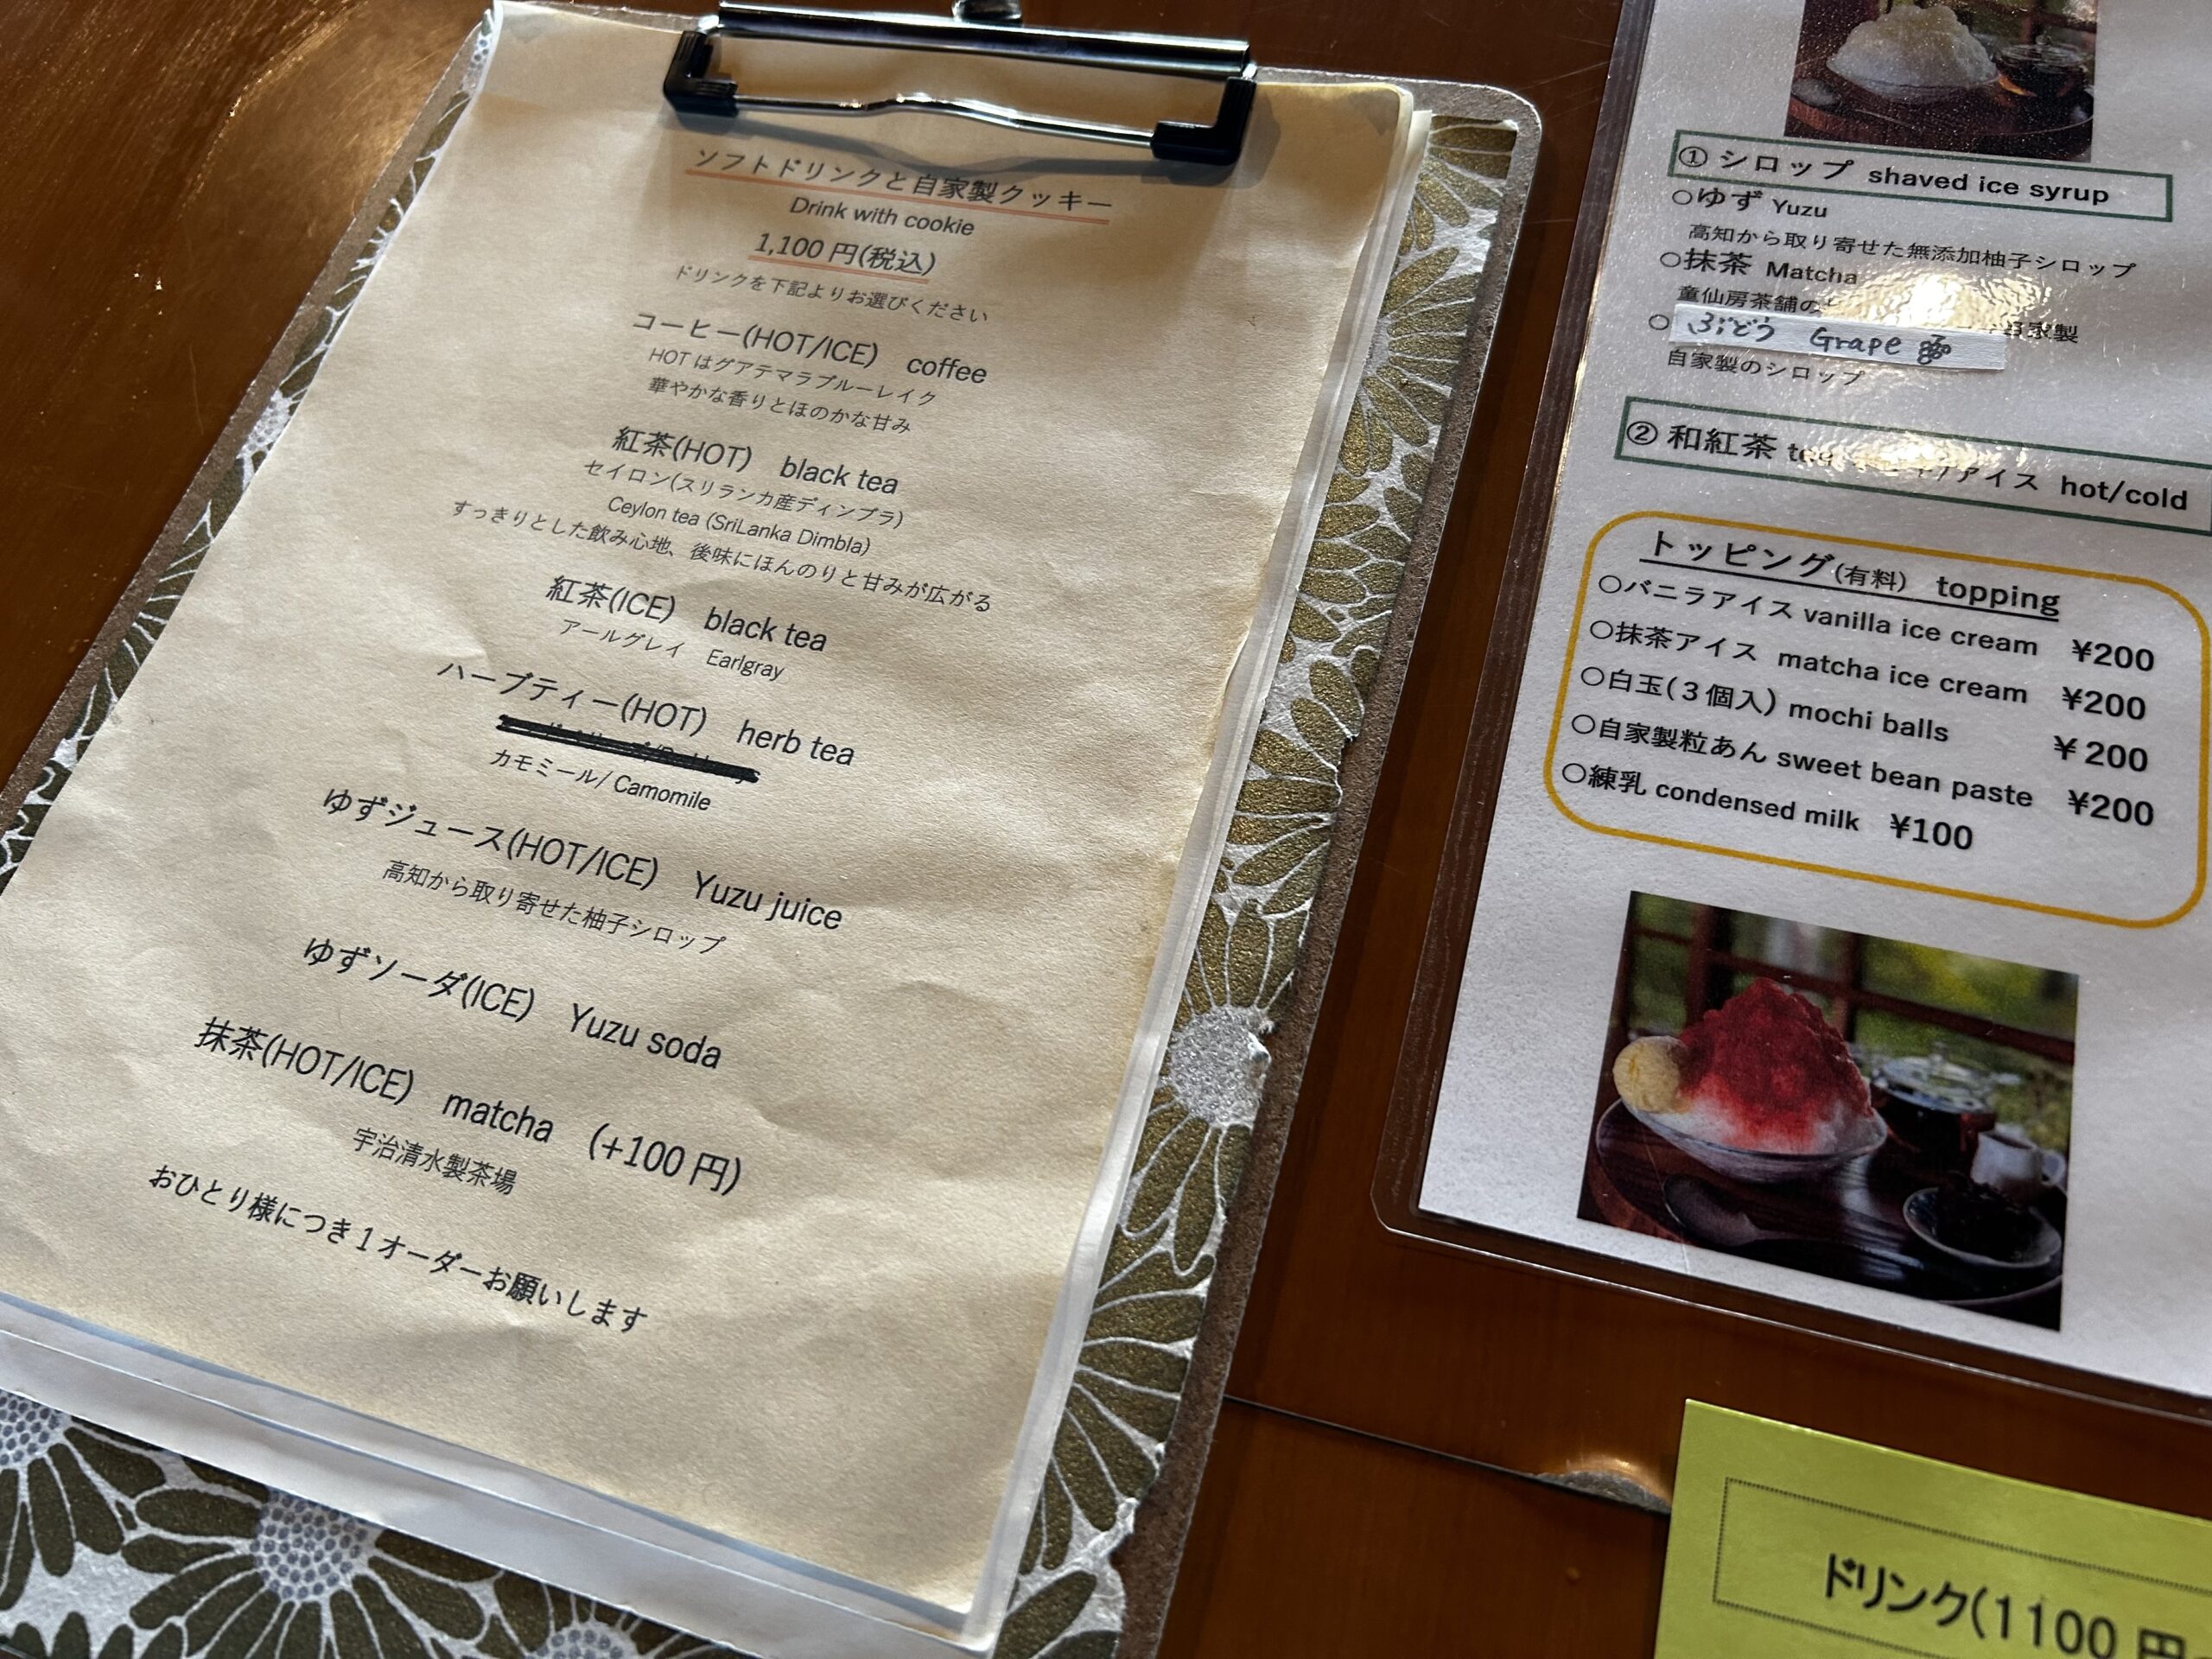 ソフトドリンクと自家製クッキー
Drink with cookie
1,100 円(税込)
ドリンクを下記よりお選びください
コーヒー(HOT/ICE) coffee
HOT はグアテマラブルーレイク
華やかな香りとほのかな甘み
紅茶(HOT) black tea
セイロン(スリランカ産ディンブラ)
Ceylon tea (SriLanka Dimbla)
すっきりとした飲み心地、後味にほんのりと甘みが広がる
紅茶(ICE) black tea
アールグレイ Earlgray
ハーブティー(HOT) herb tea
カモミール/ Camomile
ゆずジュース(HOT/ICE) Yuzu juice
高知から取り寄せた柚子シロップ
ゆずソーダ(ICE) Yuzu soda
抹茶(HOT/ICE) matcha (+100 円)
宇治清水製茶場
おひとり様につき1オーダーお願いします
① シロップ shaved ice syrup
○ゆず Yuzu
高知から取り寄せた無添加柚子シロップ
○抹茶 Matcha
童仙房茶舗の
○ ぶどう Grape
自家製のシロップ
② 和紅茶 tea アイス hot/cold
トッピング(有料) topping
○バニラアイス vanilla ice cream ¥200
○抹茶アイス matcha ice cream ¥200
○白玉(3個入) mochi balls ¥200
○自家製粒あん sweet bean paste ¥200
○練乳 condensed milk ¥100
ドリンク(1100 円